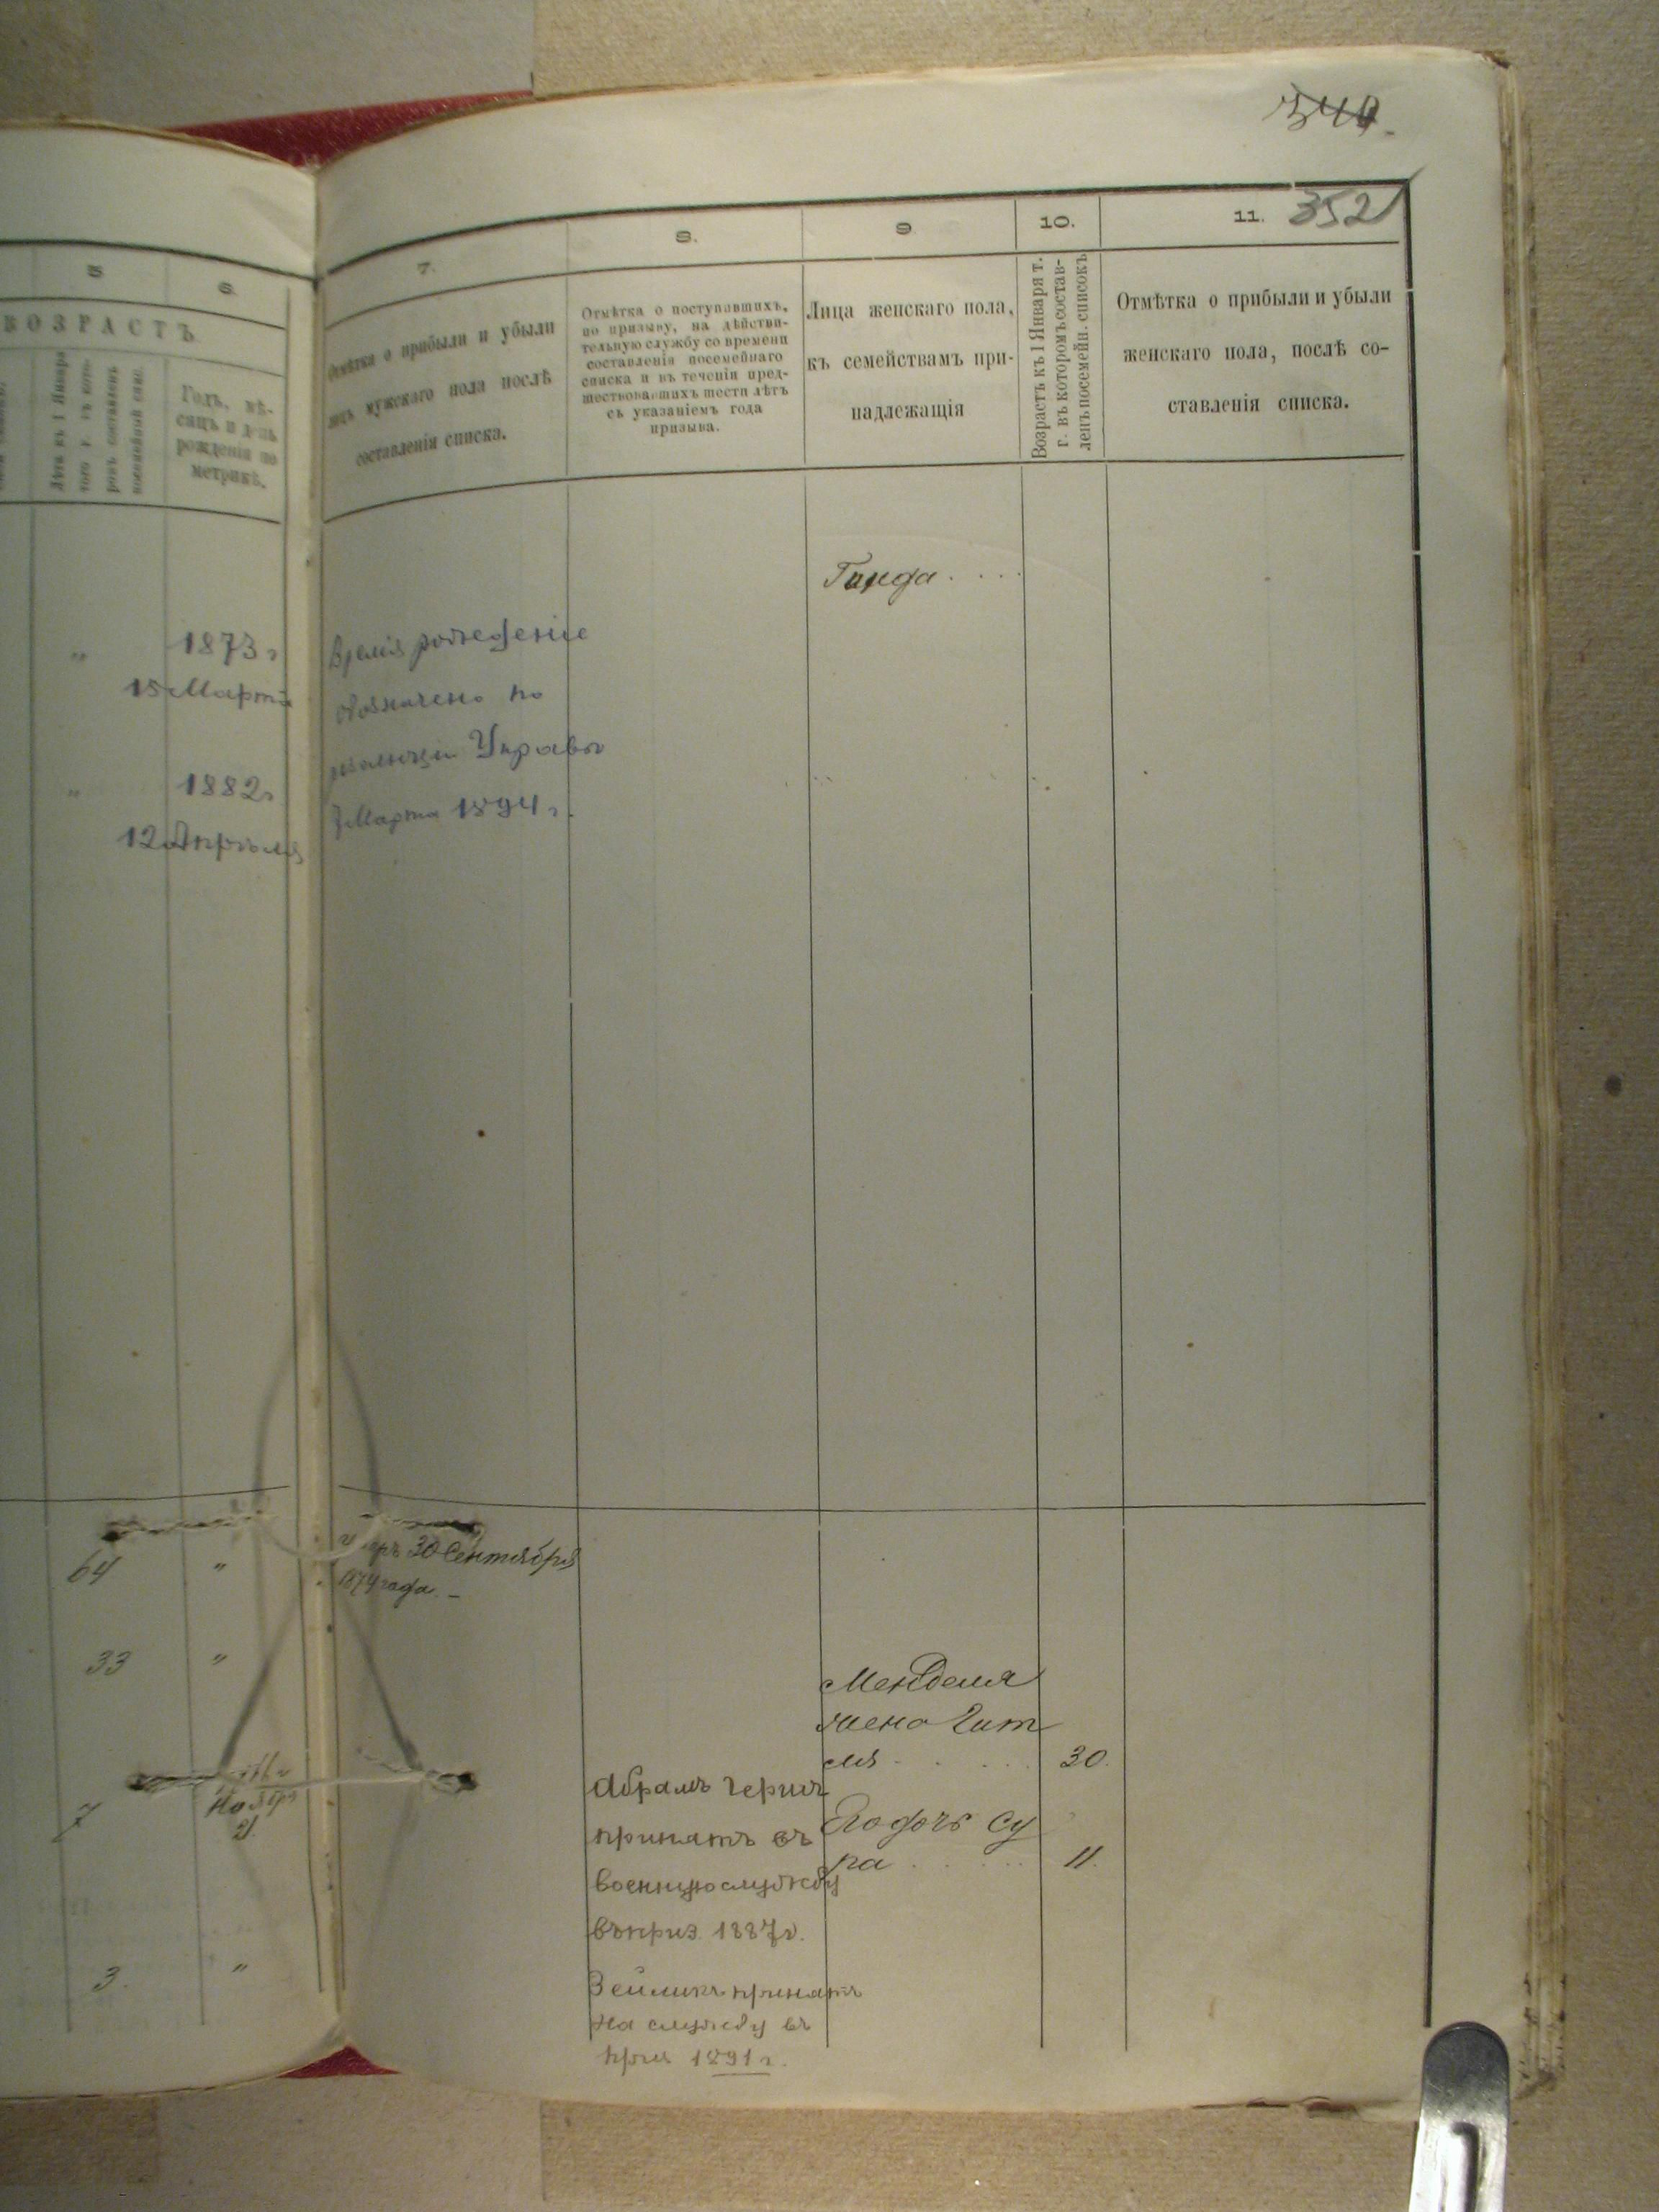 352
5
6
ВОЗРАСТЪ
Лѣта къ 1 Января
Годъ, мѣ-
сяцъ и день
рожденія по
метрикѣ.
7.
Отмѣтка о прибыли и убыли
лицъ мужскаго пола послѣ
составленія списка.
8.
Отмѣтка о поступавшихъ,
по призыву, на дѣйстви-
тельную службу со времени
составленія посемейнаго
списка и въ теченіи пред-
шествовавшихъ шести лѣтъ
съ указаніемъ года
призыва.
9
Лица женскаго пола,
къ семействамъ при-
надлежащія
10.
Возрастъ къ 1 Января т.
г. въ которомъ состав-
ленъ посемейн. списокъ
11.
Отмѣтка о прибыли и убыли
женскаго пола, послѣ со-
ставленія списка.
"
1873 г
15 Марта
"
1882 г
12 Апрѣля
Время рожденіе
обозначено по
Управы
Марта 1894 г.
64
"
30 Сентября
1874 года. –
33
"
7
Ноября
21
3.
"
Абрамъ Герш
принятъ въ
военную службу
въ приз. 1887 г.
Зеликъ принятъ
на службу въ
1891 г.
Менделя
жена Гит
ля . . . . . 30.
Его дочь Су
ра . . . . . 11.